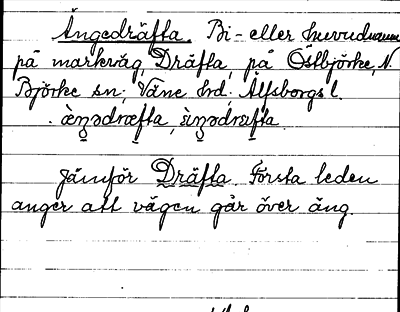 Ängedräfta. Bi- eller huvudnamn
på markväg, Dräfta, på Östbjörke, N.
Björke sn; Väne hrd. Älfsborgs l.
jämför Dräfta. Första leden
anger att vägen går över äng.